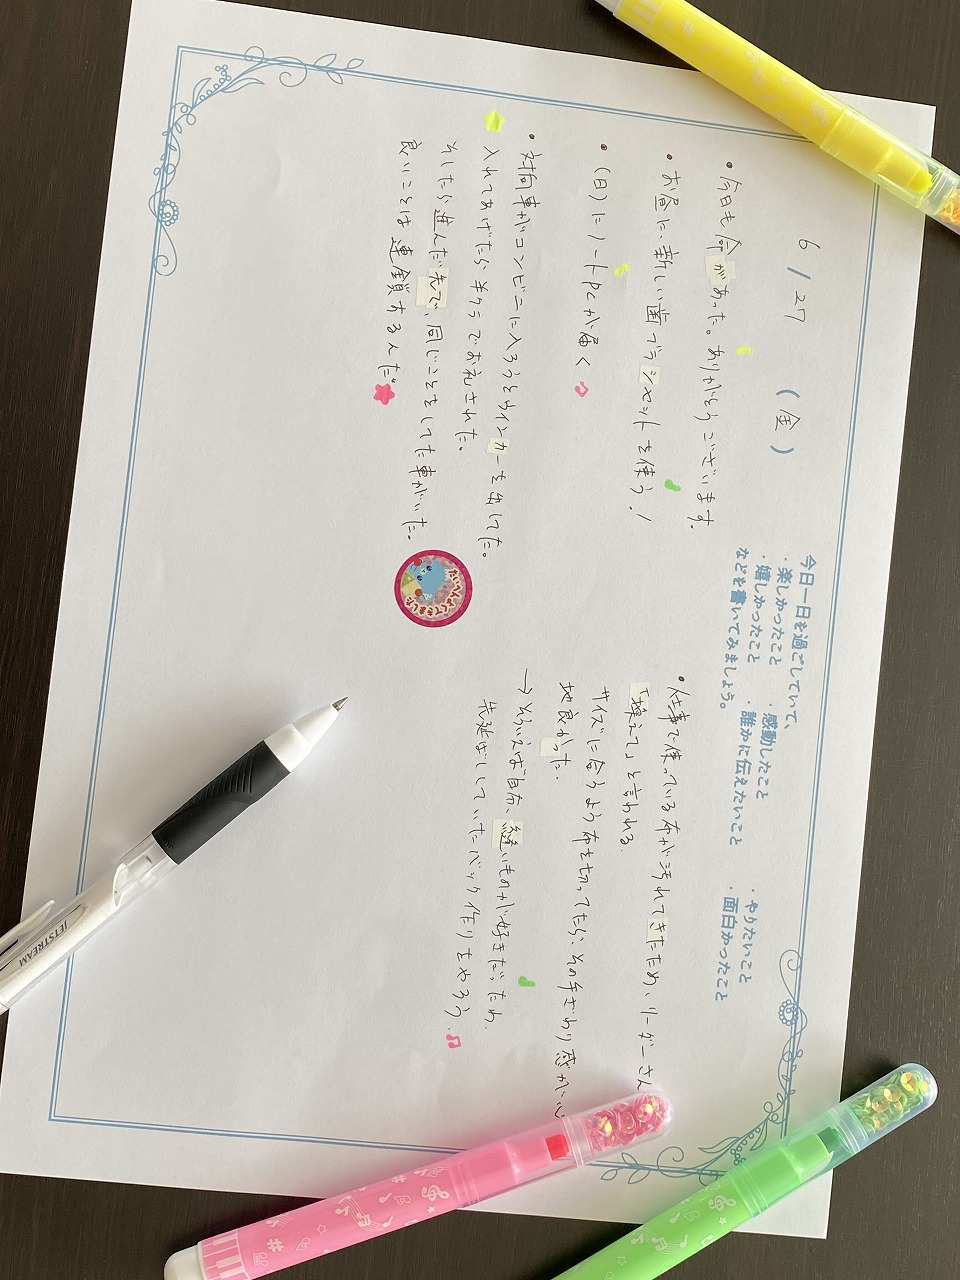 6/27 (金)
今日一日を過ごしていて、
・楽しかったこと ・感動したこと ・やりたいこと
・嬉しかったこと ・誰かに伝えたいこと ・面白かったこと
などを書いてみましょう。
・今日も命があった。ありがとうございます。
・お昼に、新しい歯ブラシセットを使う!
・(日)にノートPCが届く♫
・対向車がコンビニに入ろうとウインカーを出してた。
入れてあげたら 手クラでお礼された。
そしたら進んだ先で、同じことをしてた車がいた。
良いことは連鎖するんだ。
たいへんよくできました
・仕事で使っている布が汚れてきたため、リーダーさん
「換えて」と言われる。
サイズに合うよう布を切ってたら、その手ざわり感が心
地良かった。
→そういえば自分、縫いものが好きだったわ。
先延ばししていたバック作りをやろう♫
JETSTREAM